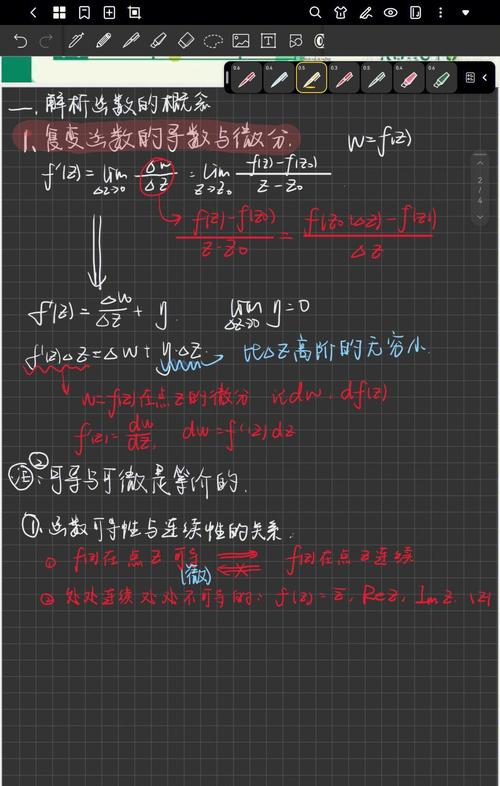 0.6 0.4 0.5 0.3 0.5 0.4 0.6
一.解析函数的概念
1.复变函数的导数与微分. w=f(z)
f'(z)=lim Δz→0 Δw/Δz = lim z→z₀ f(z)-f(z₀)/z-z₀
f(z)-f(z₀)/z-z₀ = f(z₀+Δz)-f(z₀)/Δz
2/4
f'(z)=Δw/Δz+η. lim Δz→0 η=0
f'(z)Δz=Δw+η·Δz. 比Δz高阶的无穷小.
w=f(z)在点z的微分 记dw,df(z)
f'(z)=dw/dz, dw=f'(z)dz
注②:可导与可微是等价的.
①.函数可导性与连续性的关系.
① f(z)在点z可导 ⇒ f(z)在点z连续
(微)
② 处处连续处处不可导的: f(z)=z̄, Rez, Imz, |z|